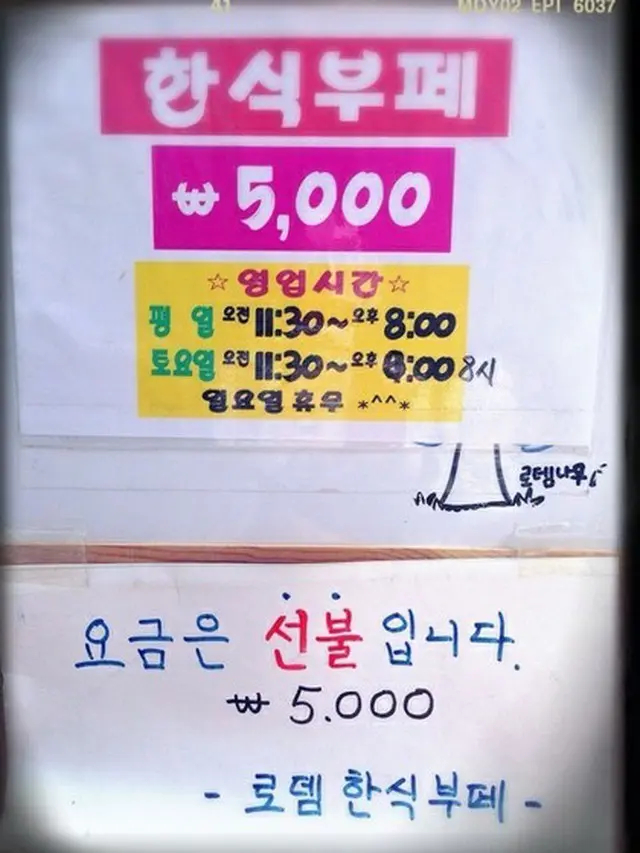 41 MDX02 EPT 6037
한식부페
₩ 5,000
☆영업시간☆
평 일 오전 11:30~오후 8:00
토요일 오전 11:30~오후 :00 8시
일요일 휴무 *^^*
로뎀나무
요금은 선불 입니다.
₩ 5.000
- 로뎀 한식부페 -